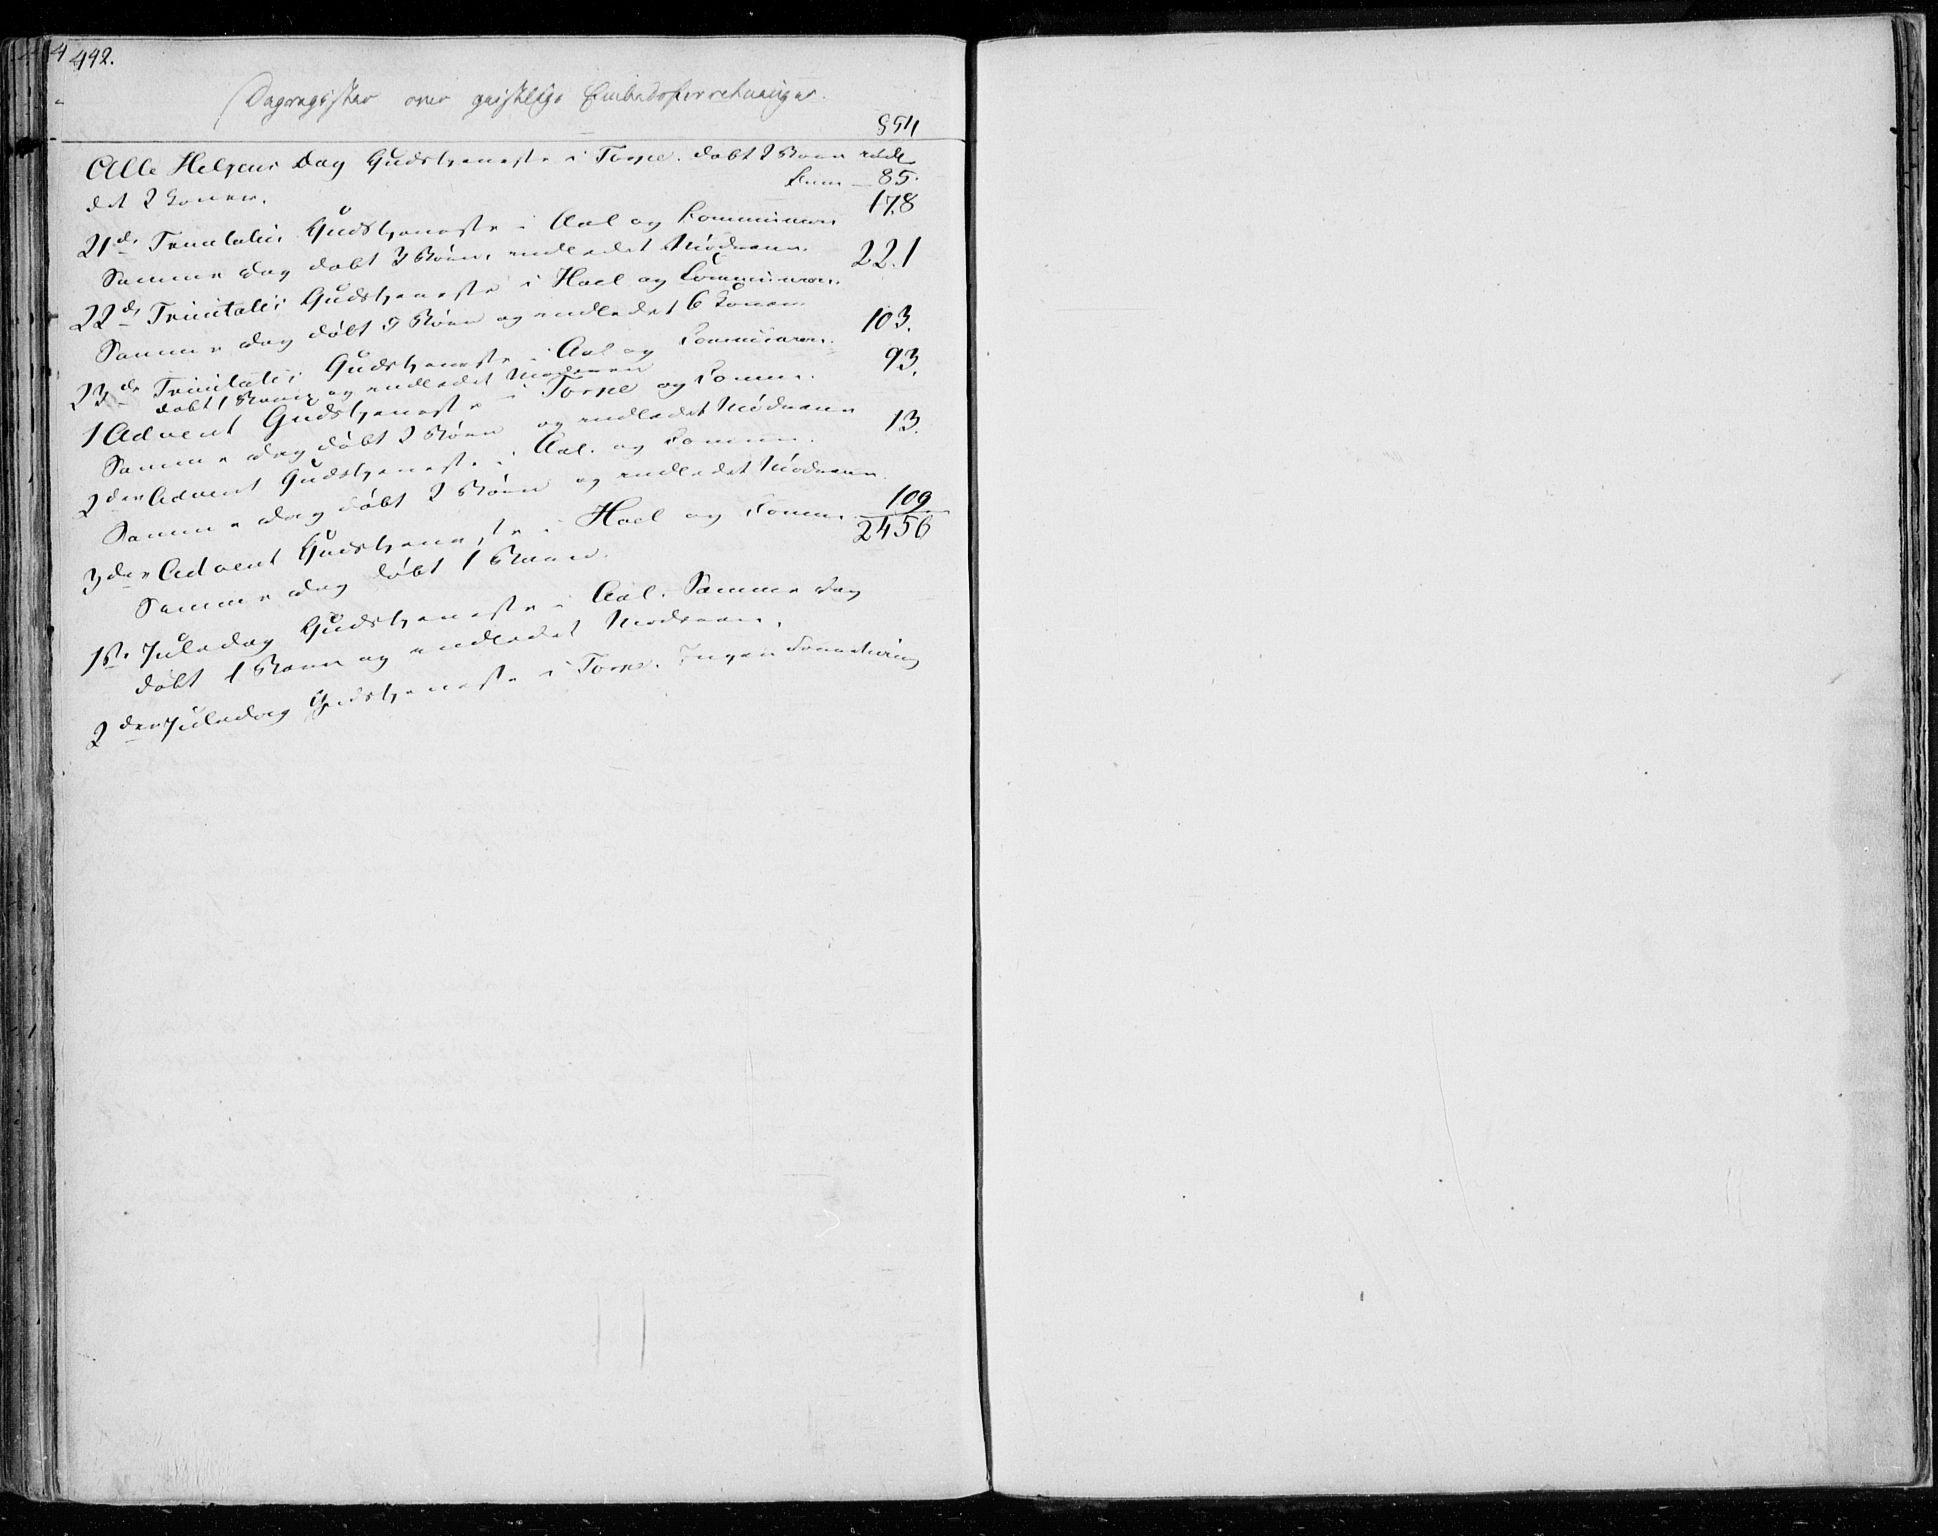 492.
Dagregister over geistlige Embedsforretninger.
Alle Helgens Dag Gudstjeneste i Torpe. døbt 2 Børn indle-
det 2 Koner. 85.
21de Trinitatis Gudstjeneste i Aal og Kommunion 178
Samme Dag døbt 3 Børn, indledet Mødrene.
22de Trinitatis Gudstjeneste i Hoel og Communion. 221
Samme Dag døbt Børn og indledet 6 Koner
23de Trinitatis Gudstjeneste i Aal og Communion. 103.
døbt 1 Barn og indledet Moderen
1 Advent Gudstjeneste i Torpe og Commn. 93.
Samme Dag døbt 2 Børn og indledet Mødrene
2den Advent Gudstjeneste i Aal. og Commn. 13.
Samme Dag døbt 2 Børn og indledet Mødrene.
3die Advent Gudstjeneste i Hoel og Commn. 109.
Samme Dag døbt 1 Barn. 2456
1ste Juledag Gudstjeneste i Aal. Samme Dag
døbt 1 Barn og indledet Moderen.
2den Juledag Gudstjeneste i Torpe. Ingen